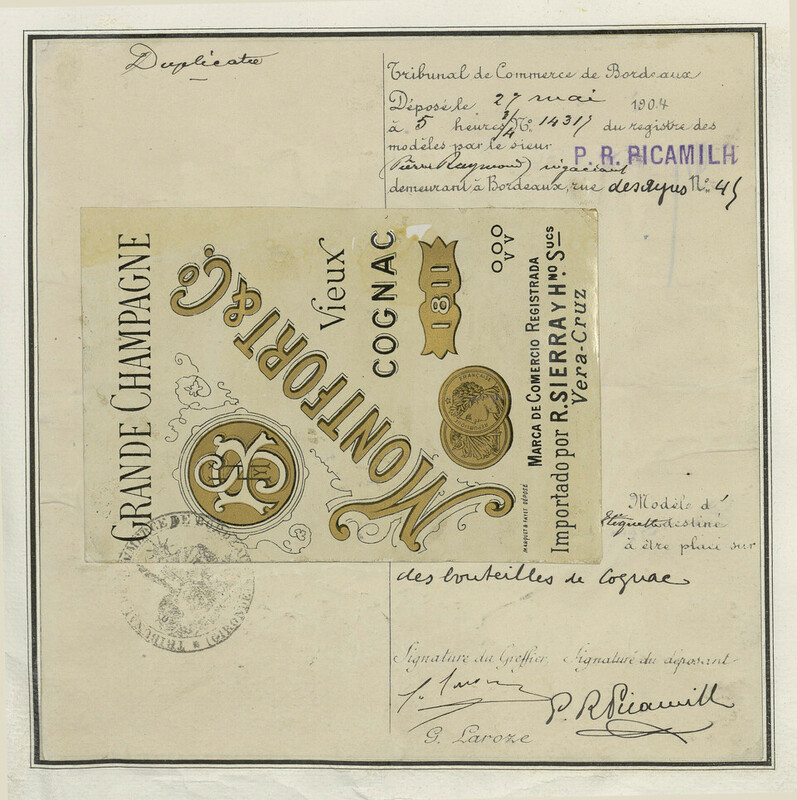 Duplicata
Tribunal de Commerce de Bordeaux
Déposé le 27 mai 1904
à 5 heures 3/4 No. 14317 du registre des
modèles par le sieur P. R. PICAMILH
(Pierre Raymond) négociant
demeurant à Bordeaux, rue des ayres No. 45
GRANDE CHAMPAGNE
MONTFORT & Co.
Vieux
COGNAC
1811
OOO
VV
MARCA DE COMERCIO REGISTRADA
Importado por R. SIERRA Y Hno. Sucs
Vera-Cruz
DÉPOSÉ
FRANÇAISE
Modèle d'
étiquette destiné
à être placé sur
des bouteilles de Cognac
TRIBUNAL DE COMMERCE DE BORDEAUX (GIRONDE)
Signature du Greffier Signature du déposant
P. R. Picamilh
G. Laroze